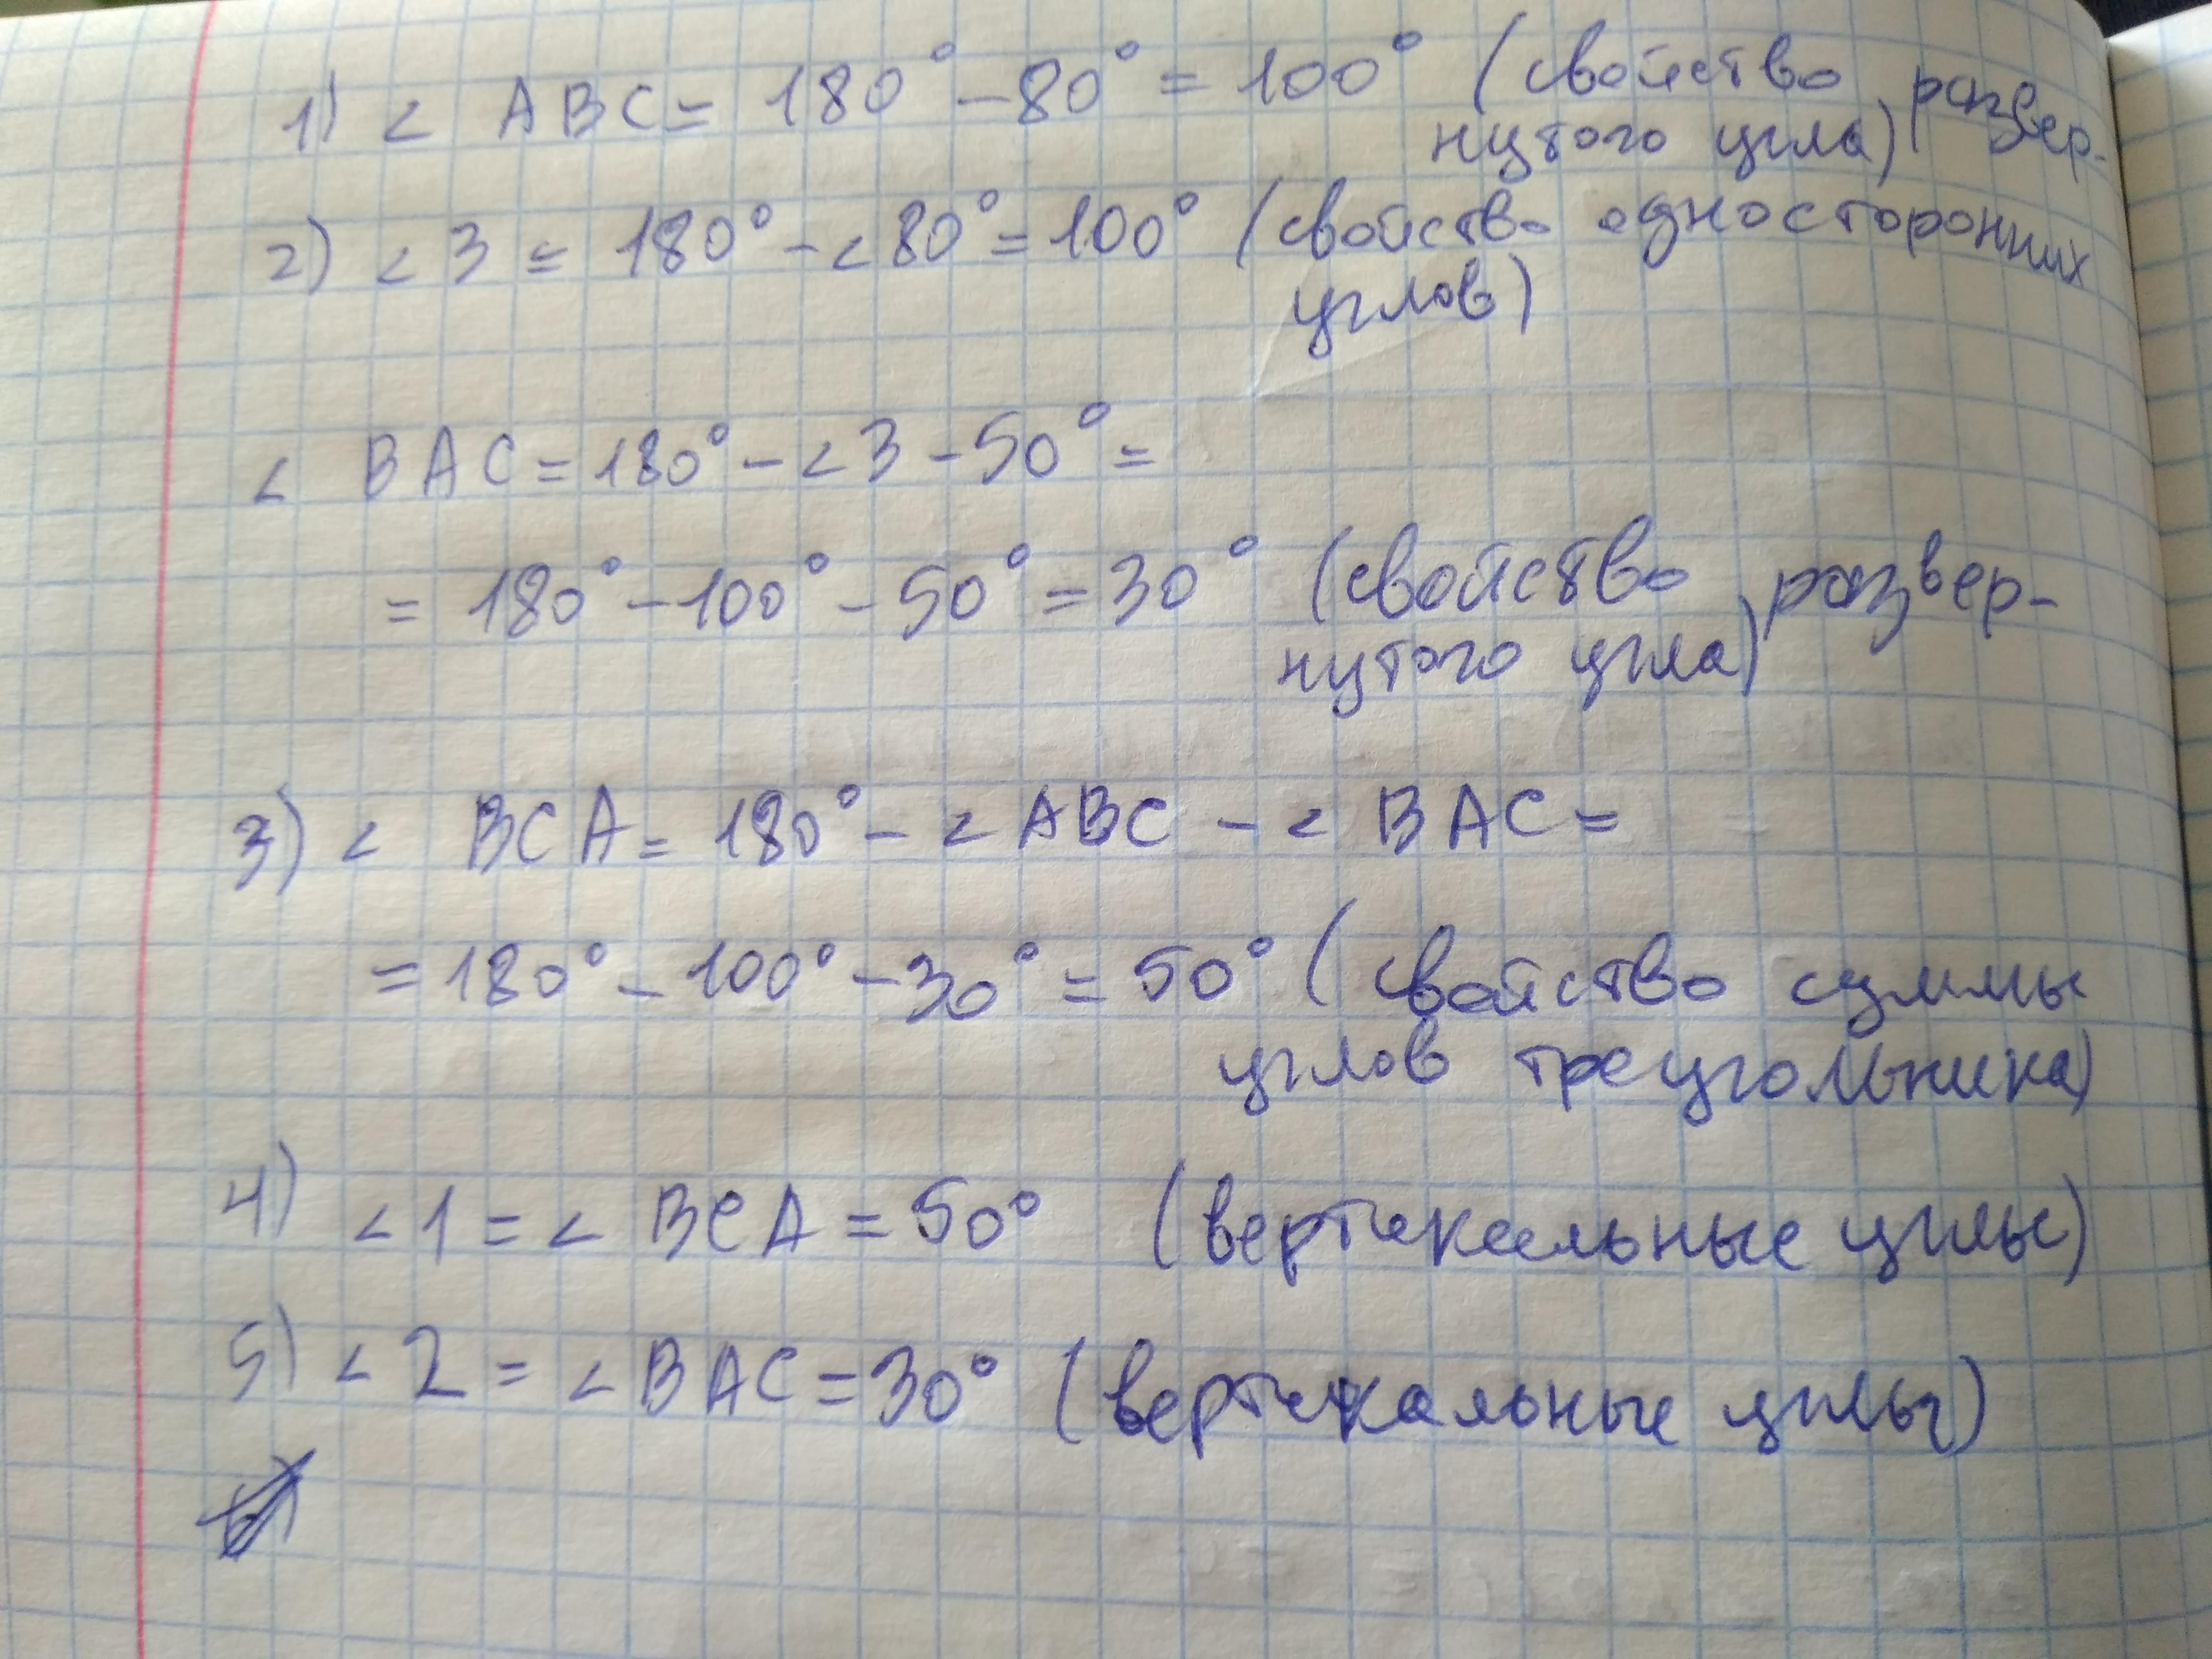 1) < ABC = 180° - 80° = 100° (свойство развер-
нутого угла)
2) < 3 = 180° - < 80° = 100° (свойство односторонних
углов)
< BAC = 180° - < 3 - 50° =
= 180° - 100° - 50° = 30° (свойство развер-
нутого угла)
3) < BCA = 180° - < ABC - < BAC =
= 180° - 100° - 30° = 50° (свойство суммы
углов треугольника)
4) < 1 = < BCA = 50° (вертикальные углы)
5) < 2 = < BAC = 30° (вертикальные углы)